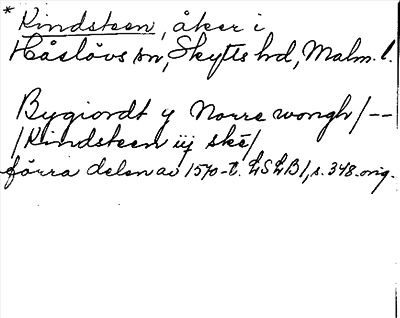 * Kindsteen, åker i
Håslövs sn, Skytts hd, Malm. l.
Bygiordt y Norre wongh/--
/Kindsteen iij ske/
förra delen av 1570-t. LSLB1, s. 348. orig.